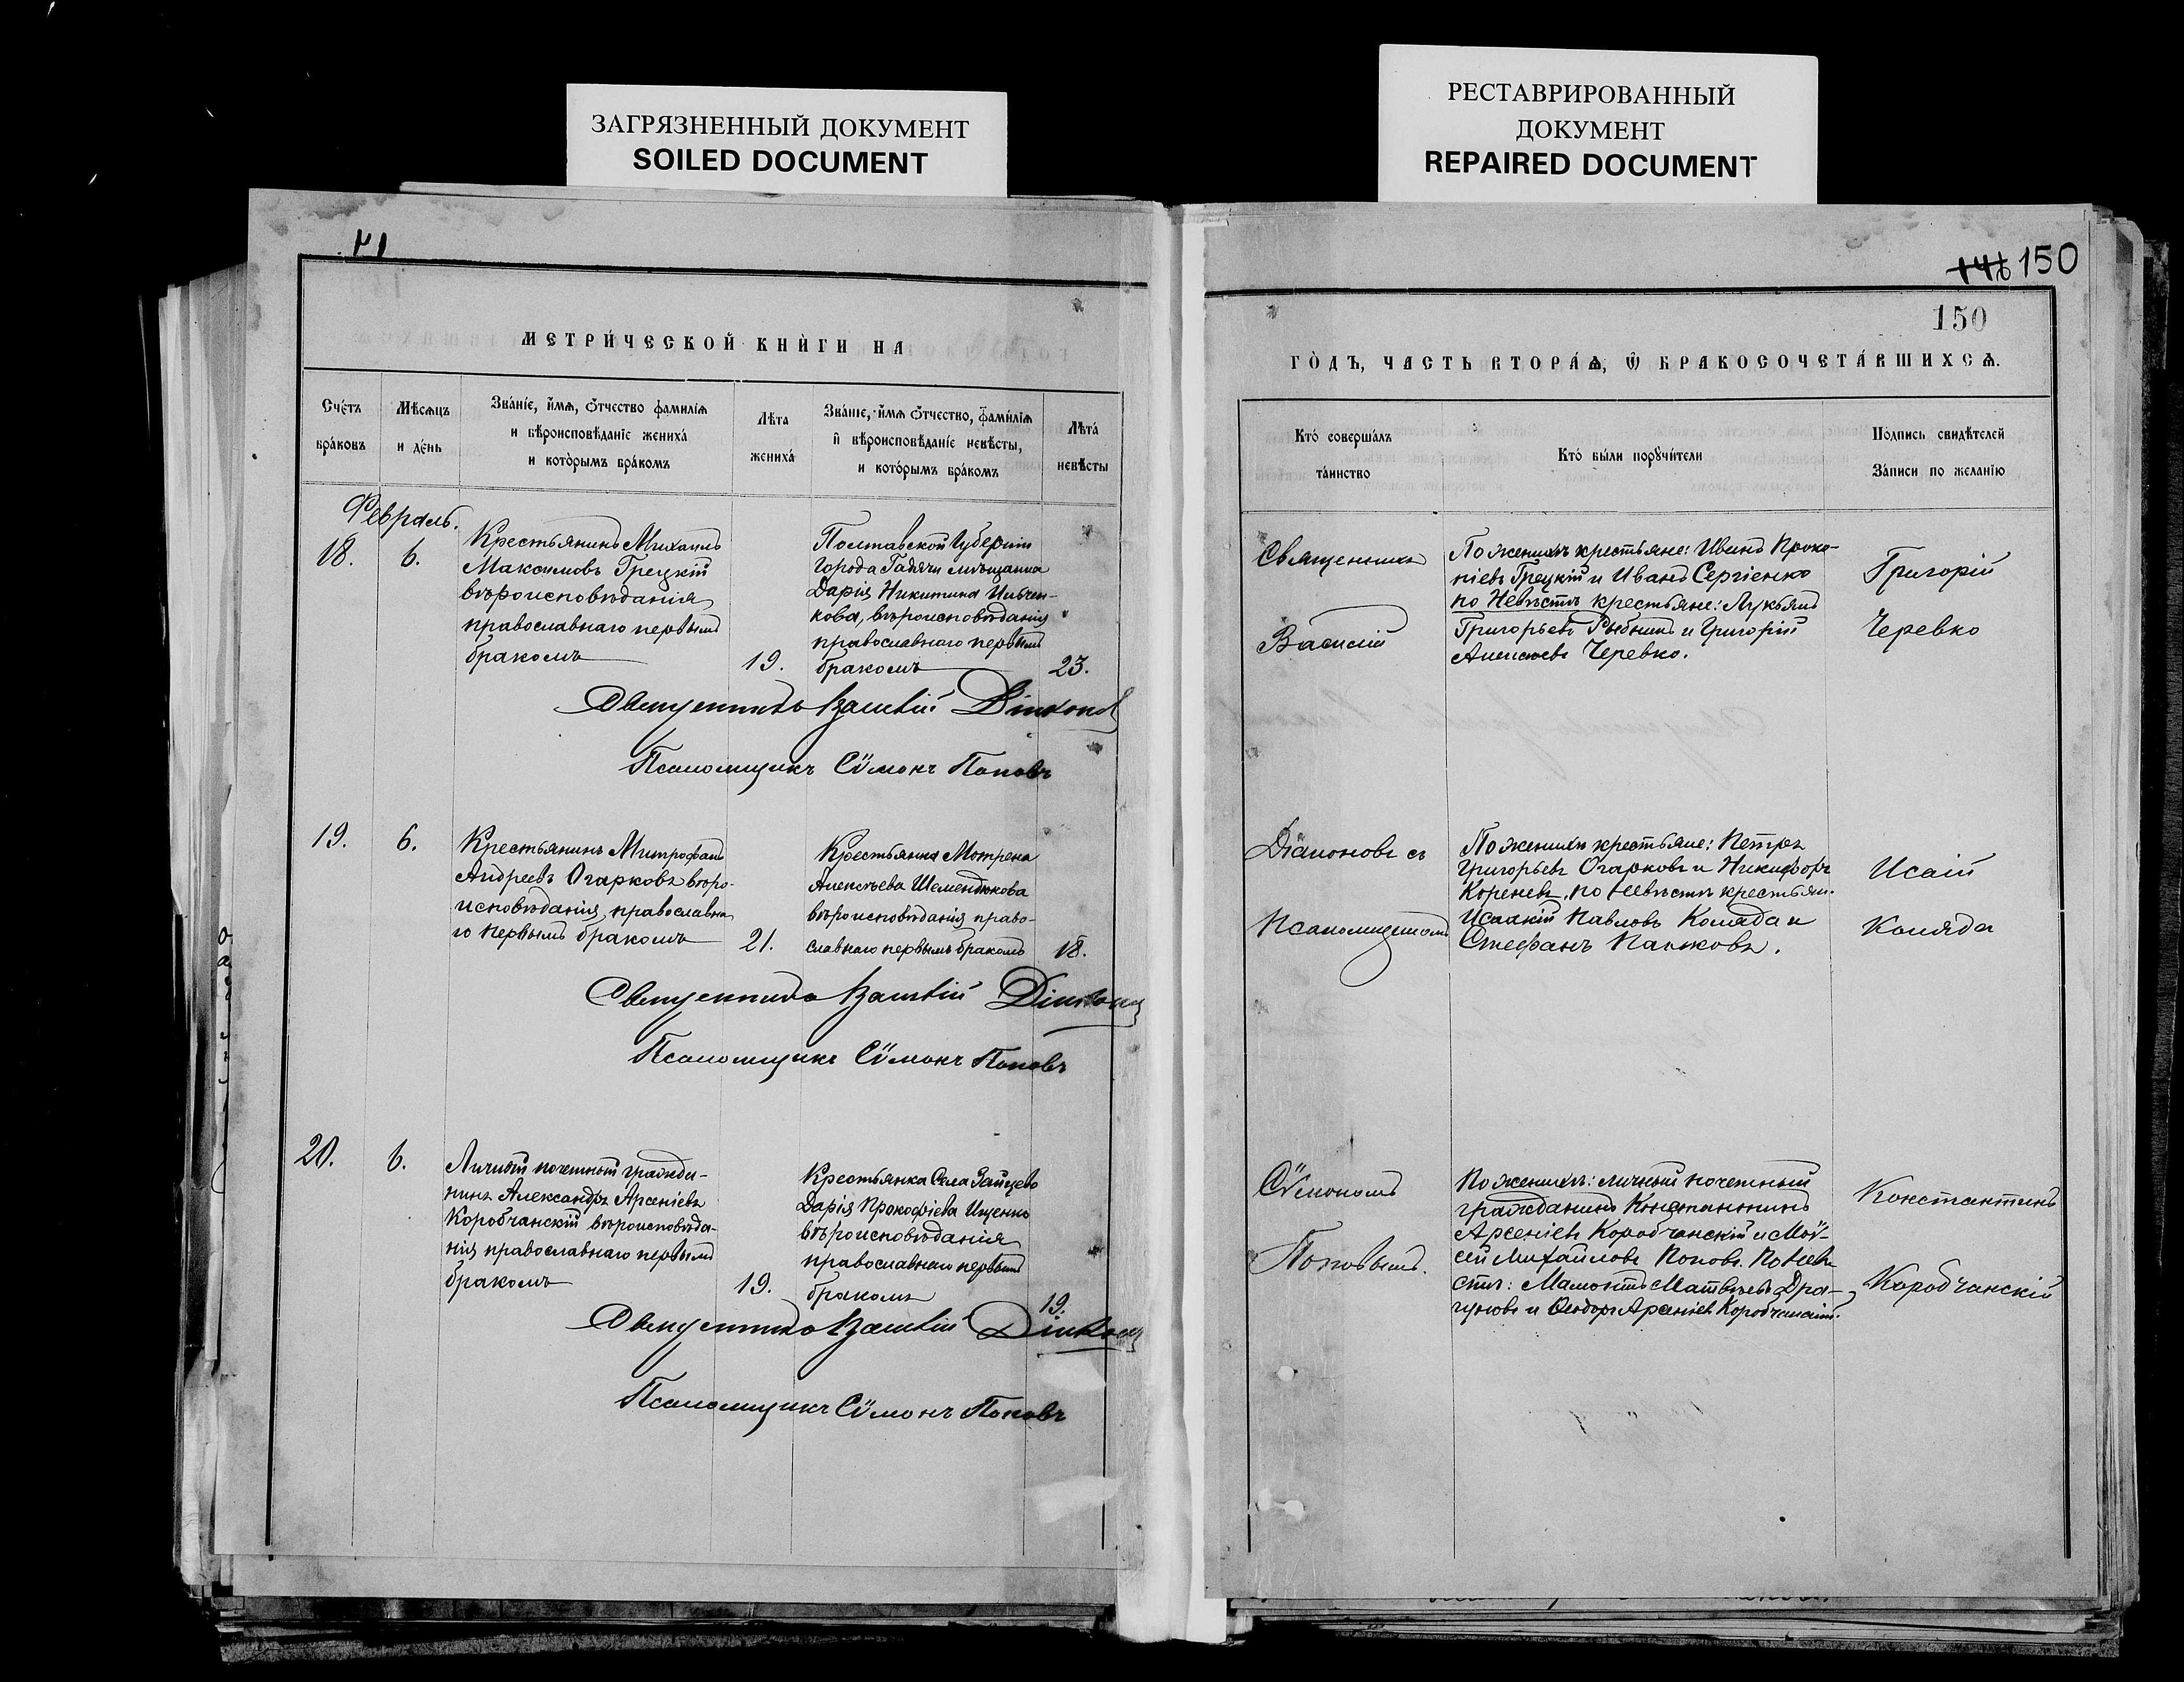 ЗАГРЯЗНЕННЫЙ ДОКУМЕНТ
SOILED DOCUMENT
РЕСТАВРИРОВАННЫЙ
ДОКУМЕНТ
REPAIRED DOCUMENT
71
МЕТРИ́ЧЕСКОЙ КНИ́ГИ НА
Сче́тъ
бра́ковъ
Мѣсѧцъ
и де́нь
Зва́нїе, и҆мѧ, ѻ҆тчество фамилїѧ
и вѣроисповѣданїе жениха́
и кото́рымъ бра́комъ
Лѣта
жениха́
Зва́нїе, и҆мѧ ѻ҆тчество, фами́лїѧ
и҆ вѣроисповѣданїе невѣсты,
и кото́рымъ бра́комъ
Лѣта́
невѣсты
Февраль.
18.
6.
Крестьянинъ Михаилъ
Максимовъ Грецкій
вѣроисповѣданія
православнаго первымъ
бракомъ
19.
Полтавской Губерніи
города Гадячи мѣщанка
Дарія Никитина Ивчен-
кова, вѣроисповѣданія
православнаго первымъ
бракомъ
23.
Священникъ Василій Діаконовъ
Псаломщикъ Сѵмонъ Поповъ
19.
6.
Крестьянинъ Митрофанъ
Андреевъ Огарковъ вѣро-
исповѣданія православна
го первымъ бракомъ
21.
Крестьянка Мотрена
Алексѣева Шемендюкова
вѣроисповѣданія право-
славнаго первымъ бракомъ
18.
Священникъ Василій Діаконовъ
Псаломщикъ Сѵмонъ Поповъ
20.
6.
Личный почетный гражда-
нинъ Александръ Арсеніевъ
Коробчанскій вѣроисповѣда-
нія православнаго первымъ
бракомъ
19.
Крестьянка Села Зайцево
Дарія Прокофіева Ищенко
вѣроисповѣданія
православнаго первымъ
бракомъ
19.
Священникъ Василій Діаконовъ
Псаломщикъ Сѵмонъ Поповъ
150
150
ГО́ДЪ, ЧАСТЬ ВТОРА́Ѧ, Ѿ БРАКОСОЧЕТА́ВШИХСѦ.
Кто́ соверша́лъ
та́инство
Кто́ бы́ли порꙋчи́тели
По́дпись свидѣтелей
За́писи по жела́нїю
Священникъ
Василій
По женихѣ крестьяне: Иванъ Проко-
піевъ Грецкій и Иванъ Сергіенко
по Невѣстѣ крестьяне: Лукьянъ
Григорьевъ Рыбынъ и Григорій
Алексѣевъ Черевко.
Григорій
Черевко
Діаконовъ съ
Псаломщикомъ
По женихѣ крестьяне: Петръ
Григорьевъ Огарковъ и Никифоръ
Кореневъ, по Невѣстѣ крестьян.
Исаакій Павловъ Коляда и
Стефанъ Панковъ.
Исаій
Коляда
Сѵмономъ
Поповымъ.
По женихѣ: личный почетный
гражданинъ Константинъ
Арсеніевъ Коробчанскій и Мои-
сей Михайловъ Поповъ. По Невѣ
стѣ: Мамонтъ Матвѣевъ Дра-
гуновъ и Ѳеодоръ Арсеніев Коробчанскій.
Константинъ
Коробчанскій